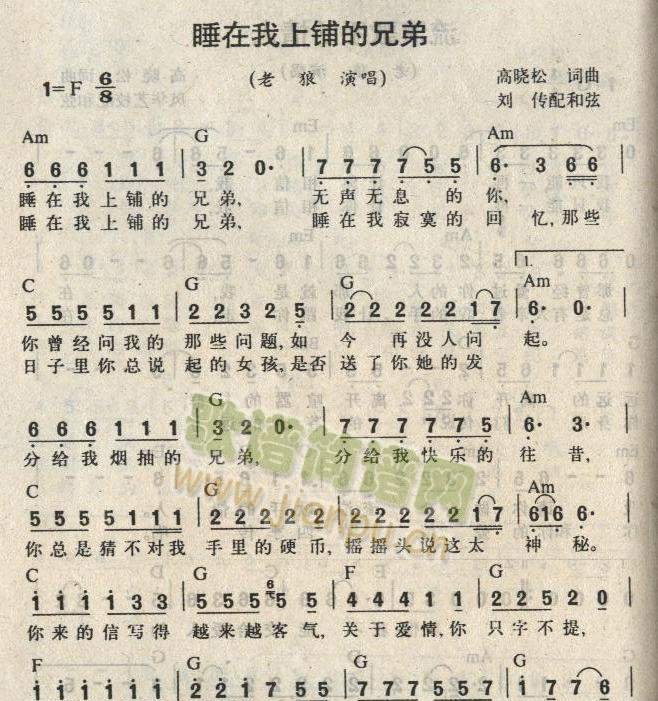 睡在我上铺的兄弟
1=F 6/8
(老 狼 演唱)
高晓松 词曲
刘 传配和弦
Am G Am
6 6 6 1 1 1 | 3 2 0· | 7 7 7 7 5 5 | 6· 3 6 6 |
睡在我上铺的 兄弟, 无声无息 的 你,
睡在我上铺的 兄弟, 睡在我寂寞的回 忆,那些
1.
C G G Am
5 5 5 5 1 1 | 2 2 3 2 5 | 2 2 2 2 2 1 7 | 6· 0· |
你曾经问我的 那些问题,如 今 再没人问 起。
日子里你总说 起的女孩,是否 送了你她的发
G Am
6 6 6 1 1 1 | 3 2 0· | 7 7 7 7 7 5 | 6· 3· |
分给我烟抽的 兄弟, 分给我快乐的 往 昔,
歌谱简谱网
www.jianpu.cn
C G Am
5 5 5 5 1 1 1 | 2 2 2 2 2 2 | 2 2 2 2 1 7 | 6 1 6 6· |
你总是猜不对我 手里的硬币,摇摇头说这太 神 秘。
C G F G
1 1 1 1 3 3 | 5 5 5 6 5 5 | 4 4 4 1 1 | 2 2 5 2 0 |
你来的信写得 越来越客气,关于爱情,你 只字不提,
F G G G
1 1 1 1 1 1 | 2 2 1 7 5 5 | 7 7 7 5 5 7 | 1 7 7 6 |